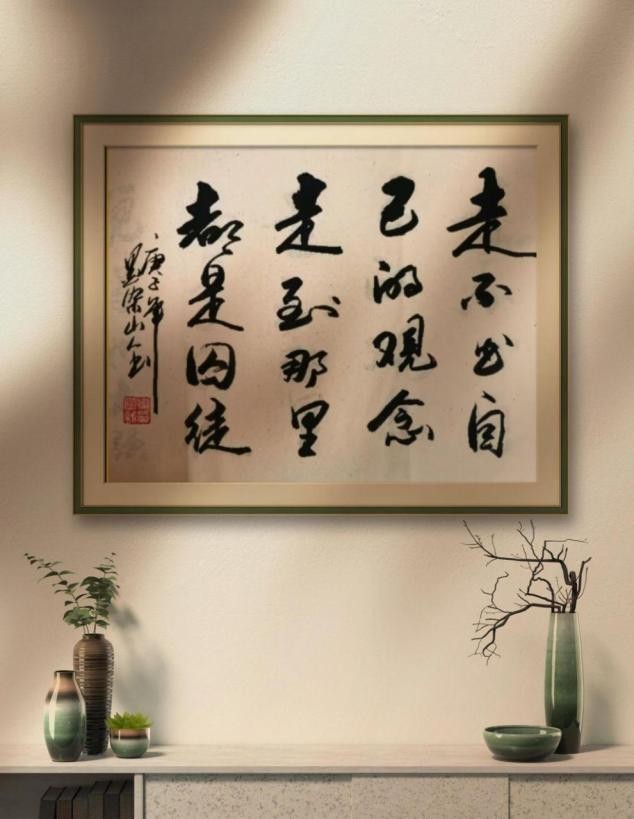 走不出自
己的观念
走到那里
都是囚徒
庚子年